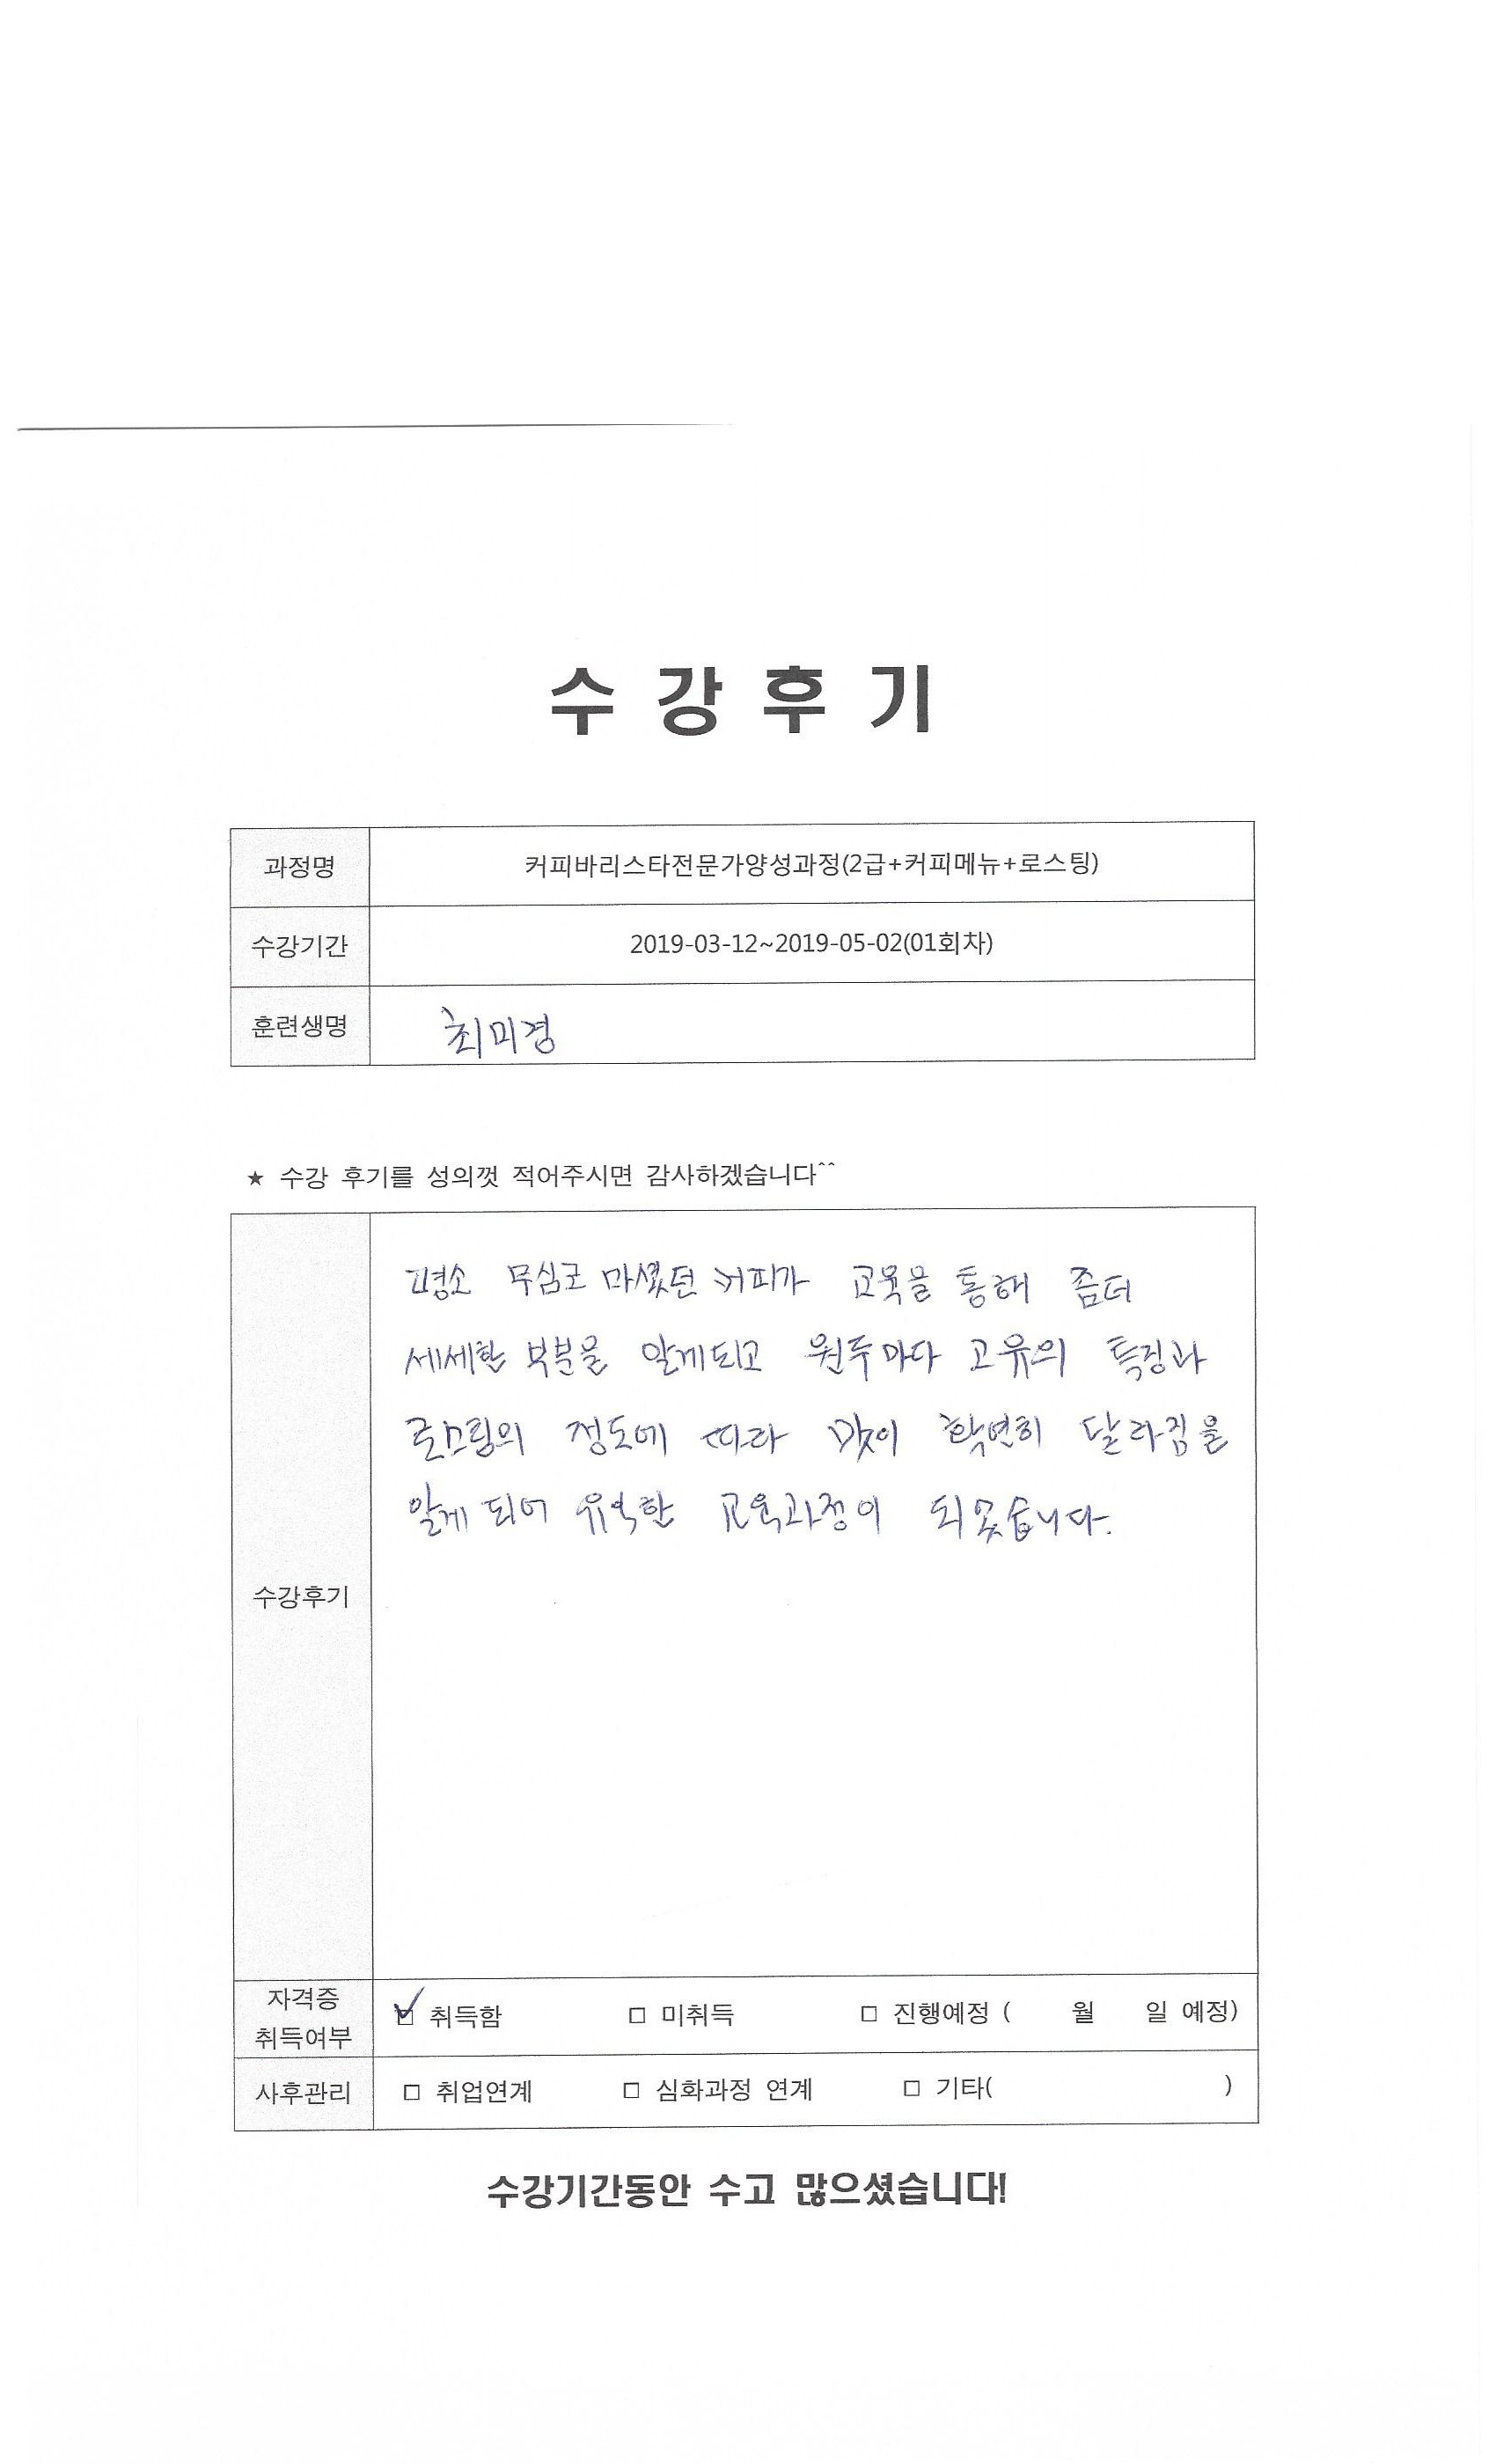 수 강 후 기
과정명 커피바리스타전문가양성과정(2급+커피메뉴+로스팅)
수강기간 2019-03-12~2019-05-02(01회차)
훈련생명 최미경
★ 수강 후기를 성의껏 적어주시면 감사하겠습니다^^
평소 무심코 마셨던 커피가 교육을 통해 좀더
세세한 부분을 알게되고 원두마다 고유의 특징과
로스팅의 정도에 따라 맛이 확연히 달라짐을
알게 되어 유익한 교육과정이 되었습니다.
수강후기
자격증
취득여부
☑ 취득함 □ 미취득 □ 진행예정 ( 월 일 예정)
사후관리 □ 취업연계 □ 심화과정 연계 □ 기타( )
수강기간동안 수고 많으셨습니다!